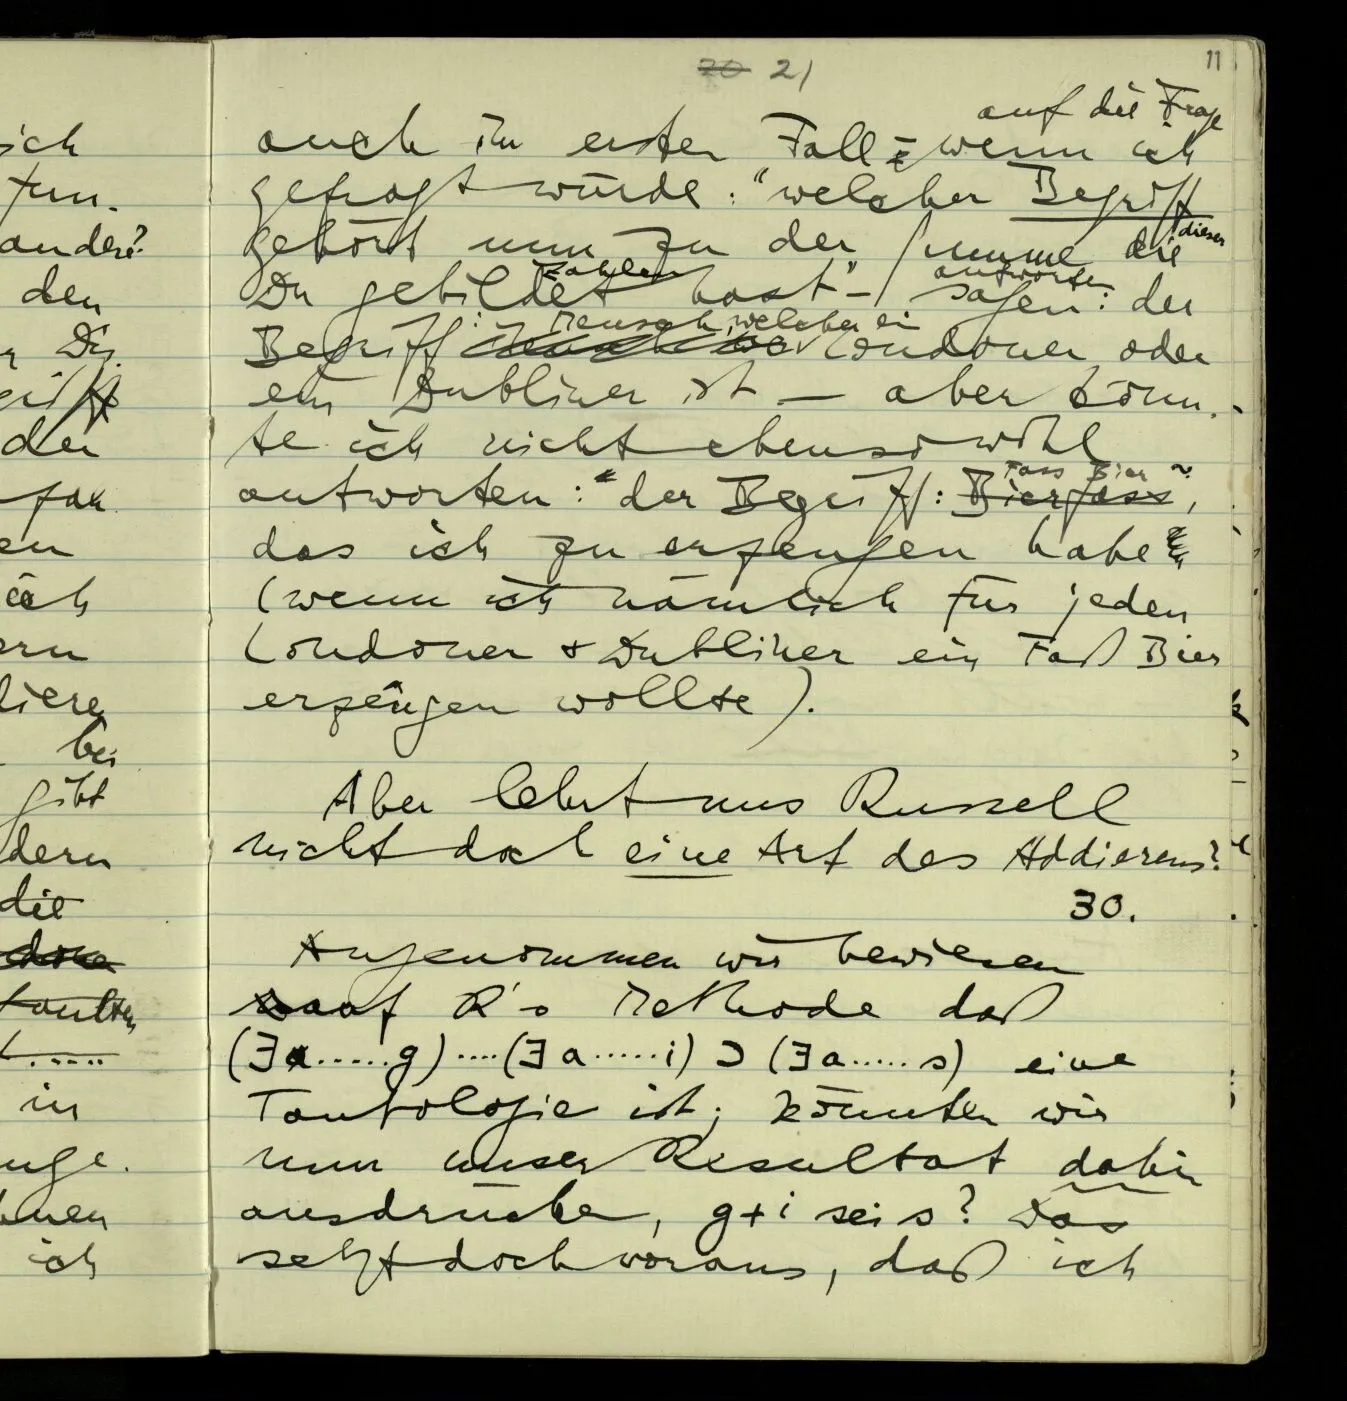 11
20 21
ich
tun.
andere?
den
der
en
ich
ern
bei
gibt
dern
die
in
uge.
ich
auf die Frage
auch im ersten Fall – wenn ich
gefragt würde: "welcher Begriff
gehört nun zu der Summe die dieser
Du gebildet Zahlen hast" – antworten sagen: der
Begriff: Mensch, welcher ein Londoner oder
ein Dubliner ist – aber könn-
te ich nicht ebensowohl
antworten: "der Begriff: Bierfass Fass Bier,
das ich zu erzeugen habe
(wenn ich nämlich für jeden
Londoner & Dubliner ein Faß Bier
erzeugen wollte).
Aber lehrt uns Russell
nicht doch eine Art des Addierens?
30.
Angenommen wir bewiesen
auf R's Methode daß
(∃a......g)....(∃a......i) ⊃ (∃a.....s) eine
Tautologie ist; könnten wir
nun unser Resultat dahin
ausdrücken, g+i sei s? Das
setzt doch voraus, daß ich